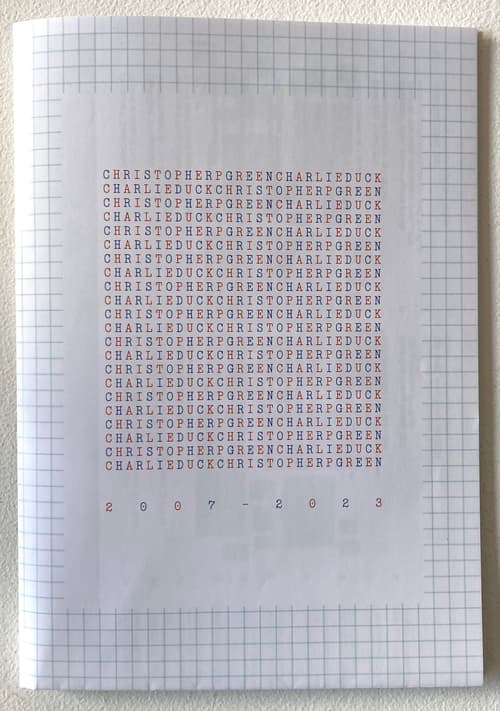 CHRISTOPHERPGREENCHARLIEDUCK
CHARLIEDUCKCHRISTOPHERPGREEN
CHRISTOPHERPGREENCHARLIEDUCK
CHARLIEDUCKCHRISTOPHERPGREEN
CHRISTOPHERPGREENCHARLIEDUCK
CHARLIEDUCKCHRISTOPHERPGREEN
CHRISTOPHERPGREENCHARLIEDUCK
CHARLIEDUCKCHRISTOPHERPGREEN
CHRISTOPHERPGREENCHARLIEDUCK
CHARLIEDUCKCHRISTOPHERPGREEN
CHRISTOPHERPGREENCHARLIEDUCK
CHARLIEDUCKCHRISTOPHERPGREEN
CHRISTOPHERPGREENCHARLIEDUCK
CHARLIEDUCKCHRISTOPHERPGREEN
CHRISTOPHERPGREENCHARLIEDUCK
CHARLIEDUCKCHRISTOPHERPGREEN
CHRISTOPHERPGREENCHARLIEDUCK
CHARLIEDUCKCHRISTOPHERPGREEN
CHRISTOPHERPGREENCHARLIEDUCK
CHARLIEDUCKCHRISTOPHERPGREEN
CHRISTOPHERPGREENCHARLIEDUCK
CHARLIEDUCKCHRISTOPHERPGREEN
2 0 0 7 - 2 0 2 3